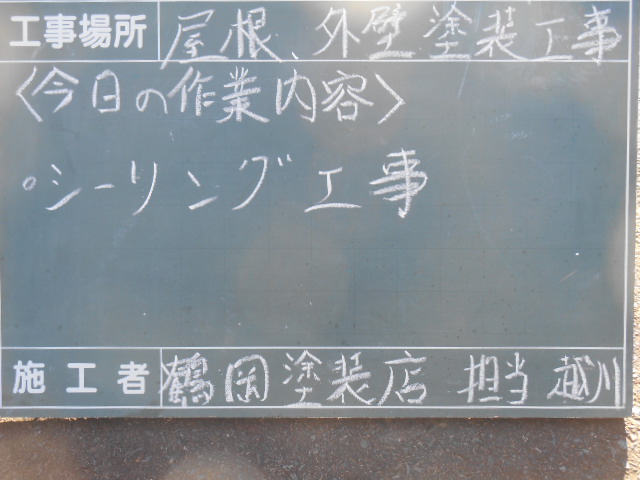 工事場所 屋根、外壁塗装工事
〈今日の作業内容〉
○シーリング工事
施工者 鶴岡塗装店 担当 越川